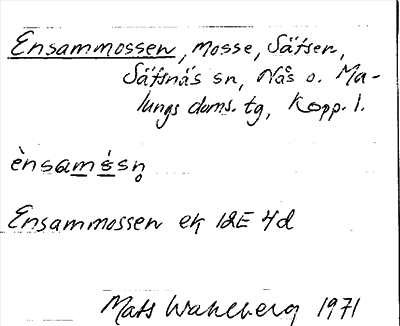 Ensammossen, mosse, Säfsen,
Säfsnäs sn, Nås o. Ma-
lungs doms. tg, Kopp. l.
ènsamśsn̥
Ensammossen ek 12E 4d
Mats Wahlberg 1971